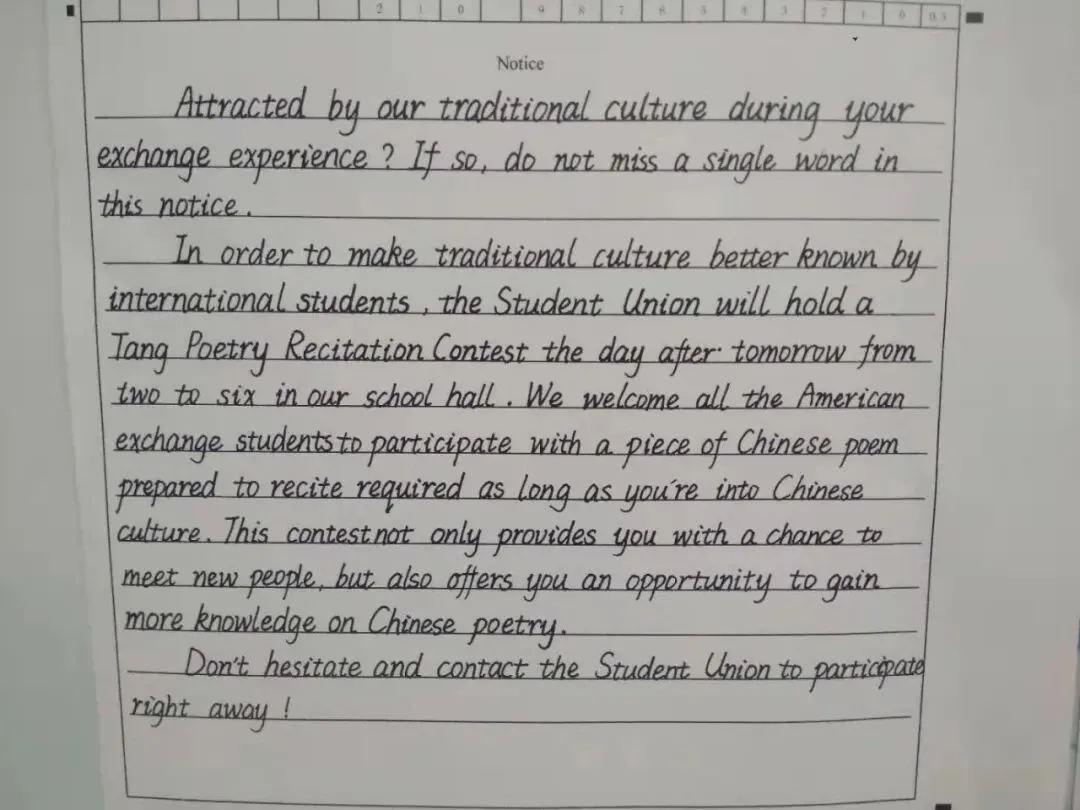 2 1 0 9 8 7 6 5 4 3 2 1 0 0.5
Notice
Attracted by our traditional culture during your
exchange experience ? If so, do not miss a single word in
this notice.
In order to make traditional culture better known by
international students, the Student Union will hold a
Tang Poetry Recitation Contest the day after tomorrow from
two to six in our school hall. We welcome all the American
exchange students to participate with a piece of Chinese poem
prepared to recite required as long as you're into Chinese
culture. This contest not only provides you with a chance to
meet new people, but also offers you an opportunity to gain
more knowledge on Chinese poetry.
Don't hesitate and contact the Student Union to participate
right away !